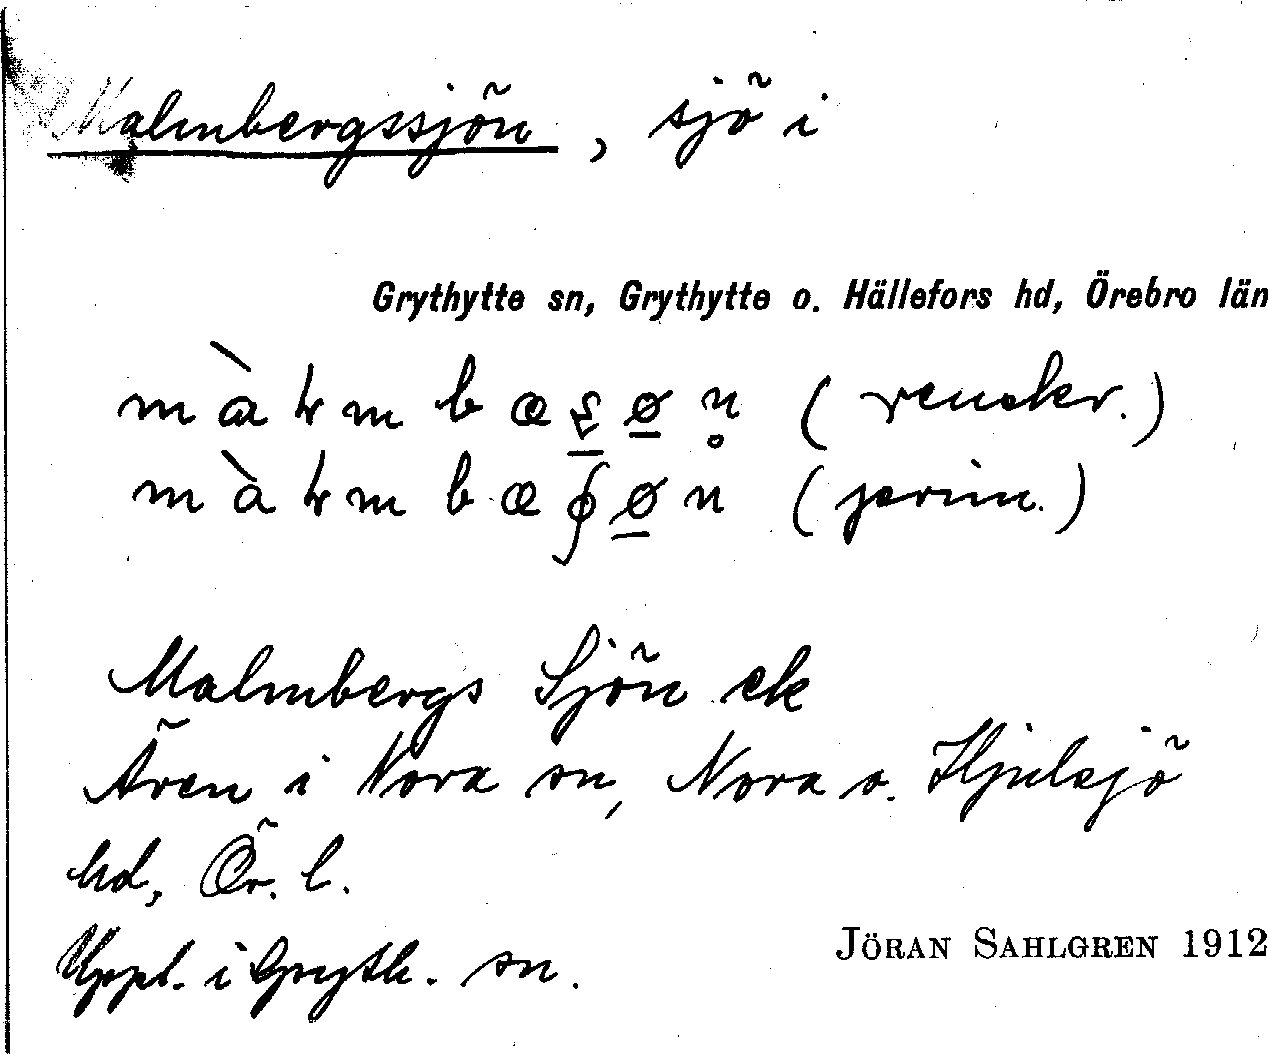 Malmbergssjön, sjö i
Grythytte sn, Grythytte o. Hällefors hd, Örebro län
(renskr.)
Malmbergs Sjön ek
Ären i Nora sn, Nora o. Hjulsjö
hd, Ör. l.
Uppt. i Gryth. sn.
JÖRAN SAHLGREN 1912